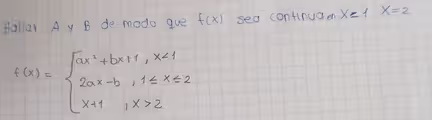 Hallar A y B de modo que f(x) sea continua en x=1 x=2
f(x) = { ax² + bx + 1 , x < 1
2ax - b , 1 ≤ x ≤ 2
x+1 , x > 2